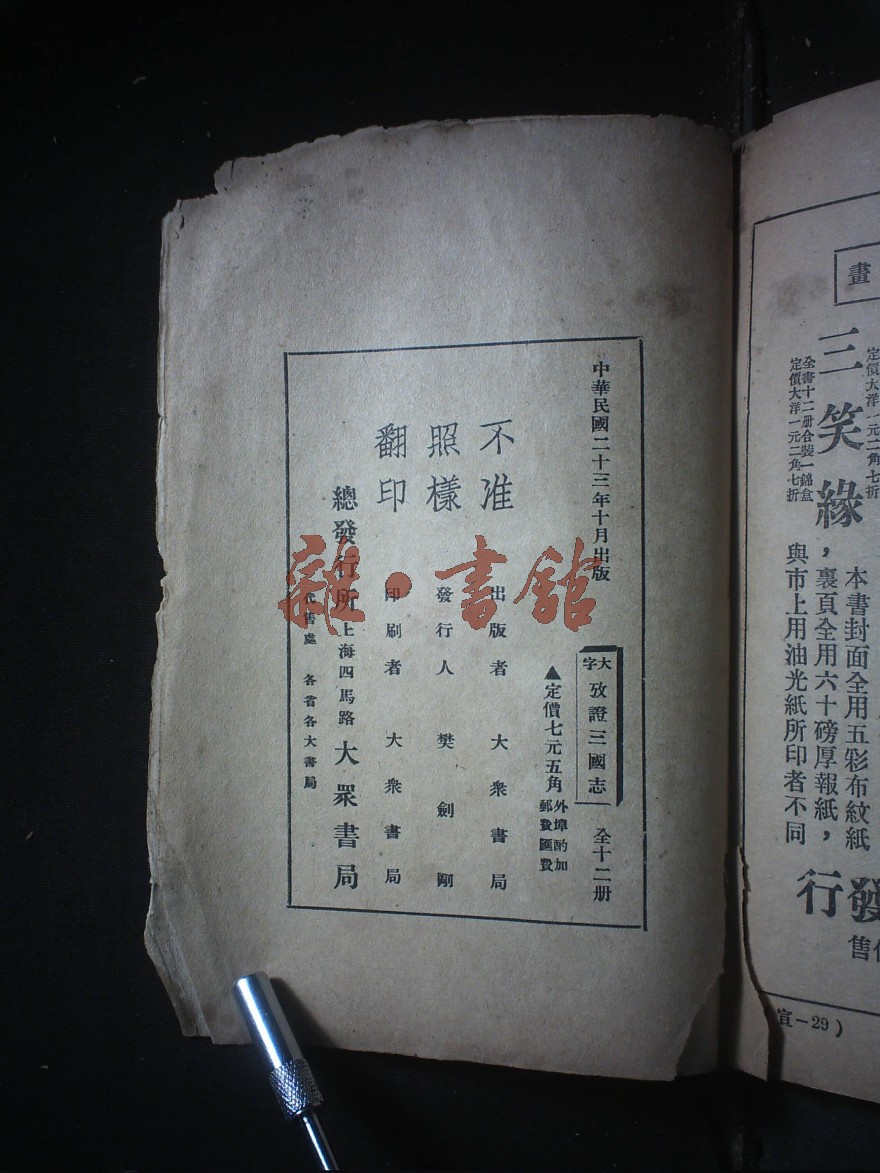 中華民國二十三年十月出版
大字
攷證三國志
全十二册
▲定價七元五角
外埠酌加
郵費匯費
不准
照樣
翻印
出版者 大衆書局
發行人 樊劍剛
印刷者 大衆書局
總發行所 上海四馬路 大眾書局
代售處 各省各大書局
雜·書館
畫
定價大洋一元二角七折
三笑緣
全書十二册合裝一錦盒
定價大洋一元二角七折
本書封面全用五彩布紋紙
裏頁全用六十磅厚報紙，
與市上用油光紙所印者不同
發行
售
宣-29）